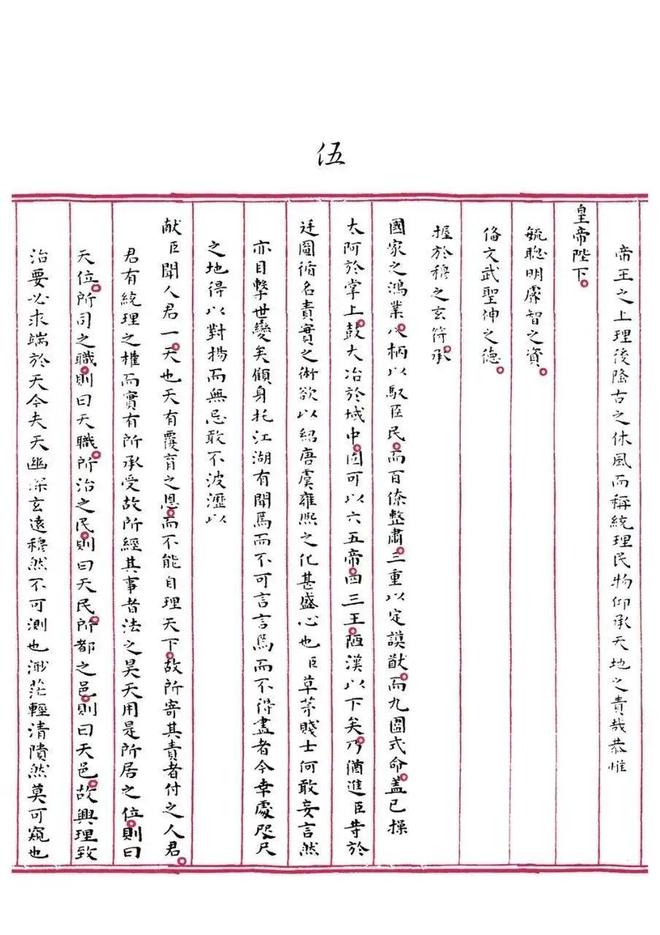 伍
帝王之上理後隆古之休風而稱統理民物仰承天地之責哉恭惟
皇帝陛下
毓聰明睿智之資
備文武聖神之德
握於穆之玄符承
國家之鴻業八柄以馭臣民而百僚整肅三重以定謨猷而九圍式命蓋已操
太阿於掌上鼓大冶於域中固可以六五帝而四三王陋漢以下矣乃猶進臣等於
廷圖循名責實之術欲以紹唐虞雍熙之化甚盛心也臣草茅賤士何敢妄言然
亦目擊世變矣顧身托江湖有聞焉而不可言言焉而不得盡者今幸處咫尺
之地得以對揚而無忌敢不波瀝以
獻臣聞人君一天也天有覆育之恩而不能自理天下故所寄其責者付之人君
君有統理之權而實有所承受故所經其事者法之昊天用是所居之位則曰
天位所司之職則曰天職所治之民則曰天民所都之邑則曰天邑故興理致
治要必求端於天今夫天幽深玄遠穆然不可測也渺茫輕清隤然莫可窺也